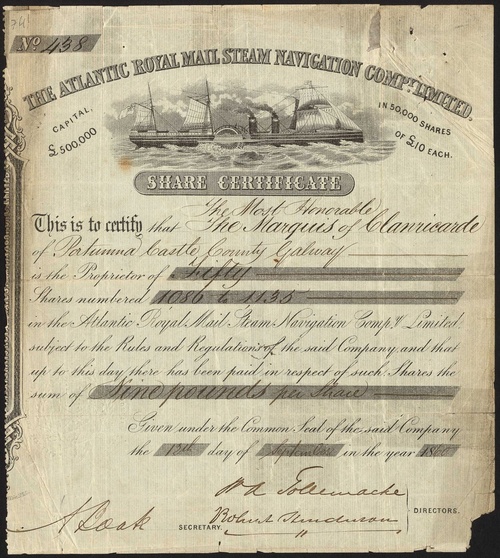 No 438
THE ATLANTIC ROYAL MAIL STEAM NAVIGATION COMPY LIMITED.
CAPITAL, £500,000
IN 50,000 SHARES OF £10 EACH.
SHARE CERTIFICATE
The Most Honorable
This is to certify that The Marquis of Clanricarde
of Portumna Castle County Galway
is the Proprietor of Fifty
Shares numbered 1086 to 1135
in the Atlantic Royal Mail Steam Navigation Compy. Limited.
subject to the Rules and Regulations of the said Company, and that
up to this day there has been paid in respect of such Shares the
sum of Nine pounds per Share
Given under the Common Seal of the said Company
the 13th day of September in the year 1860
W A Tollemache
DIRECTORS.
Robert Henderson
SECRETARY.